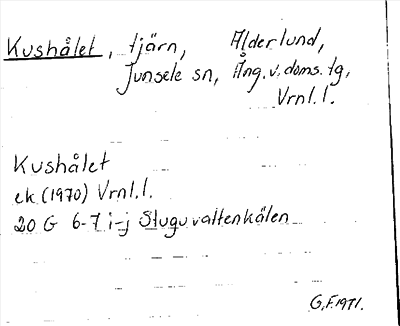 Kushålet, tjärn, Alderlund,
Junsele sn, Ång. v. doms. tg,
Vrnl.l.
Kushålet
ek (1970) Vrnl.l.
20 G 6-7 i-j Stuguvattenkälen
G.F. 1971.